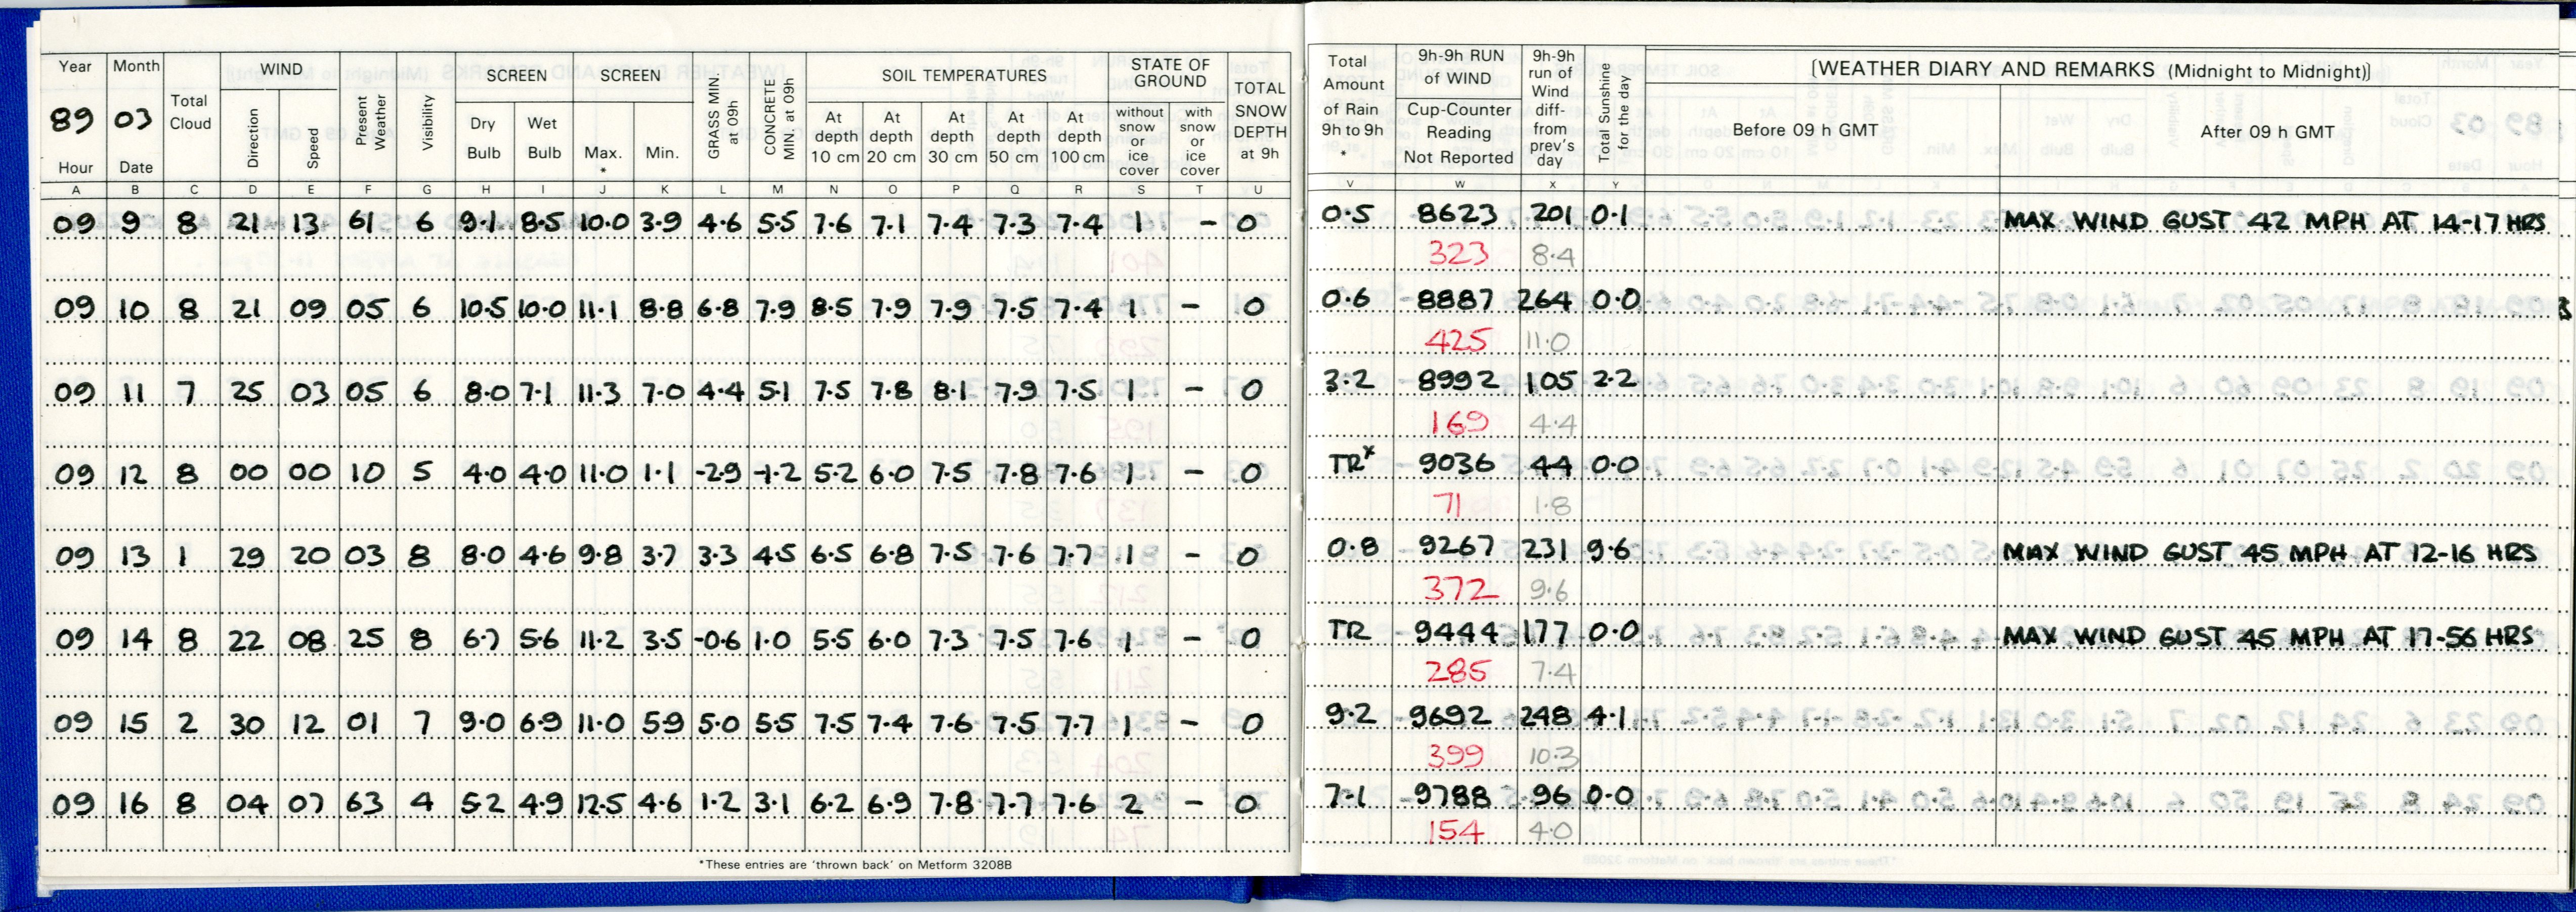 Year Month Total Cloud WIND Present Weather Visibility SCREEN SCREEN GRASS MIN. at 09h CONCRETE MIN. at 09h SOIL TEMPERATURES STATE OF GROUND TOTAL SNOW DEPTH at 9h
89 03 Direction Speed Dry Bulb Wet Bulb Max. * Min. At depth 10 cm At depth 20 cm At depth 30 cm At depth 50 cm At depth 100 cm without snow or ice cover with snow or ice cover
Hour Date
A B C D E F G H I J K L M N O P Q R S T U
09 9 8 21 13 61 6 9.1 8.5 10.0 3.9 4.6 5.5 7.6 7.1 7.4 7.3 7.4 1 - 0
09 10 8 21 09 05 6 10.5 10.0 11.1 8.8 6.8 7.9 8.5 7.9 7.9 7.5 7.4 1 - 0
09 11 7 25 03 05 6 8.0 7.1 11.3 7.0 4.4 5.1 7.5 7.8 8.1 7.9 7.5 1 - 0
09 12 8 00 00 10 5 4.0 4.0 11.0 1.1 -2.9 -1.2 5.2 6.0 7.5 7.8 7.6 1 - 0
09 13 1 29 20 03 8 8.0 4.6 9.8 3.7 3.3 4.5 6.5 6.8 7.5 7.6 7.7 1 - 0
09 14 8 22 08 25 8 6.7 5.6 11.2 3.5 -0.6 1.0 5.5 6.0 7.3 7.5 7.6 1 - 0
09 15 2 30 12 01 7 9.0 6.9 11.0 5.9 5.0 5.5 7.5 7.4 7.6 7.5 7.7 1 - 0
09 16 8 04 07 63 4 5.2 4.9 12.5 4.6 1.2 3.1 6.2 6.9 7.8 7.7 7.6 2 - 0
*These entries are 'thrown back' on Metform 3208B
Total Amount of Rain 9h to 9h * 9h-9h RUN of WIND Cup-Counter Reading Not Reported 9h-9h run of Wind diff- from prev's day Total Sunshine for the day [WEATHER DIARY AND REMARKS (Midnight to Midnight)]
Before 09 h GMT After 09 h GMT
V W X Y
0.5 8623 201 0.1 MAX WIND GUST 42 MPH AT 14-17 HRS
323 8.4
0.6 8887 264 0.0
425 11.0
3.2 8992 105 2.2
169 4.4
TR* 9036 44 0.0
71 1.8
0.8 9267 231 9.6 MAX WIND GUST 45 MPH AT 12-16 HRS
372 9.6
TR 9444 177 0.0 MAX WIND GUST 45 MPH AT 17-56 HRS
285 7.4
9.2 9692 248 4.1
399 10.3
7.1 9788 96 0.0
154 4.0